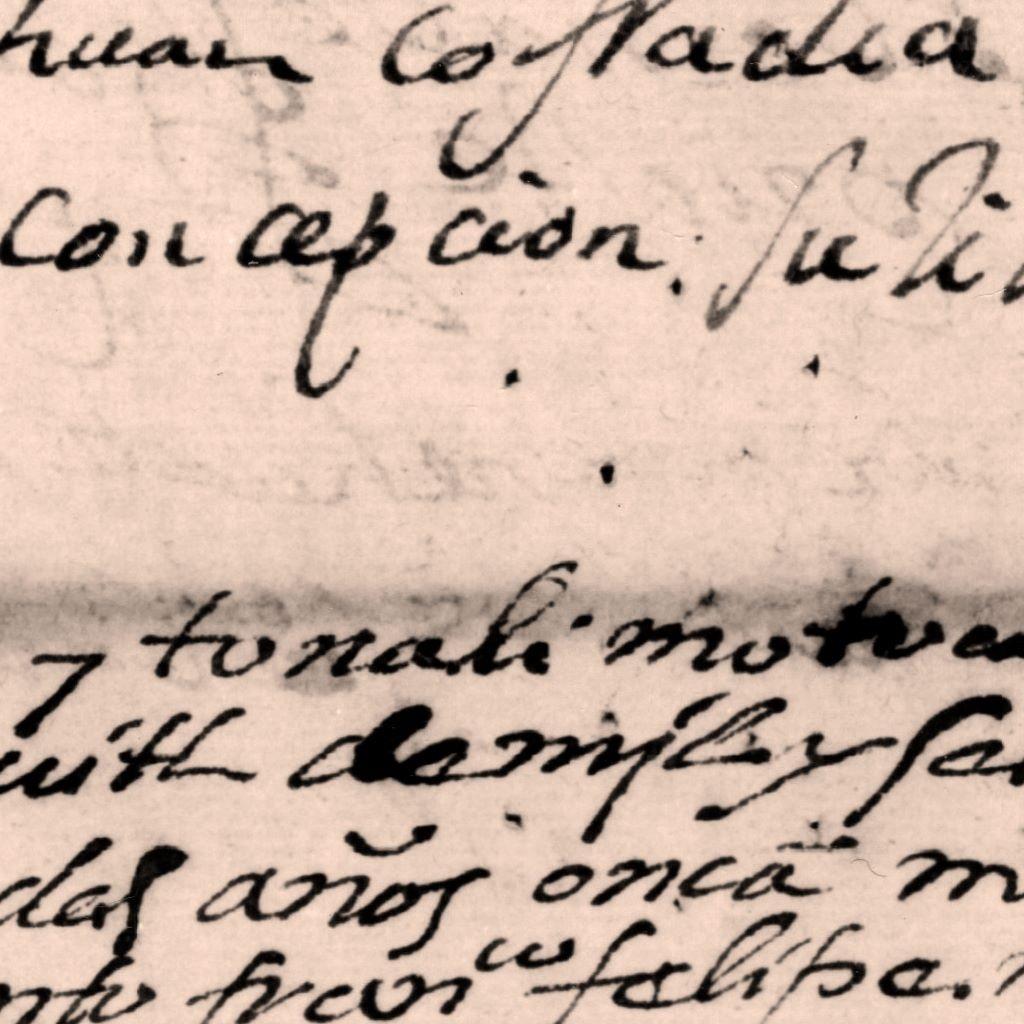 huan Cofladia
Concepcion. Su Li
y tonali motue
uitl de mjl y se
das años onca m
nto fran^co felipe.